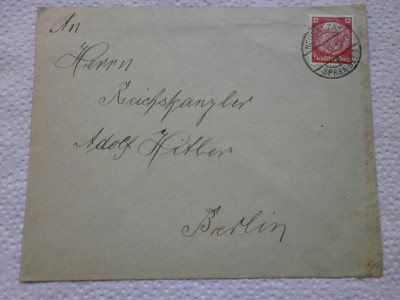 An
Herrn
Reichskanzler
Adolf Hitler
Berlin
12 12
Deutsches Reich
SPREMBERG